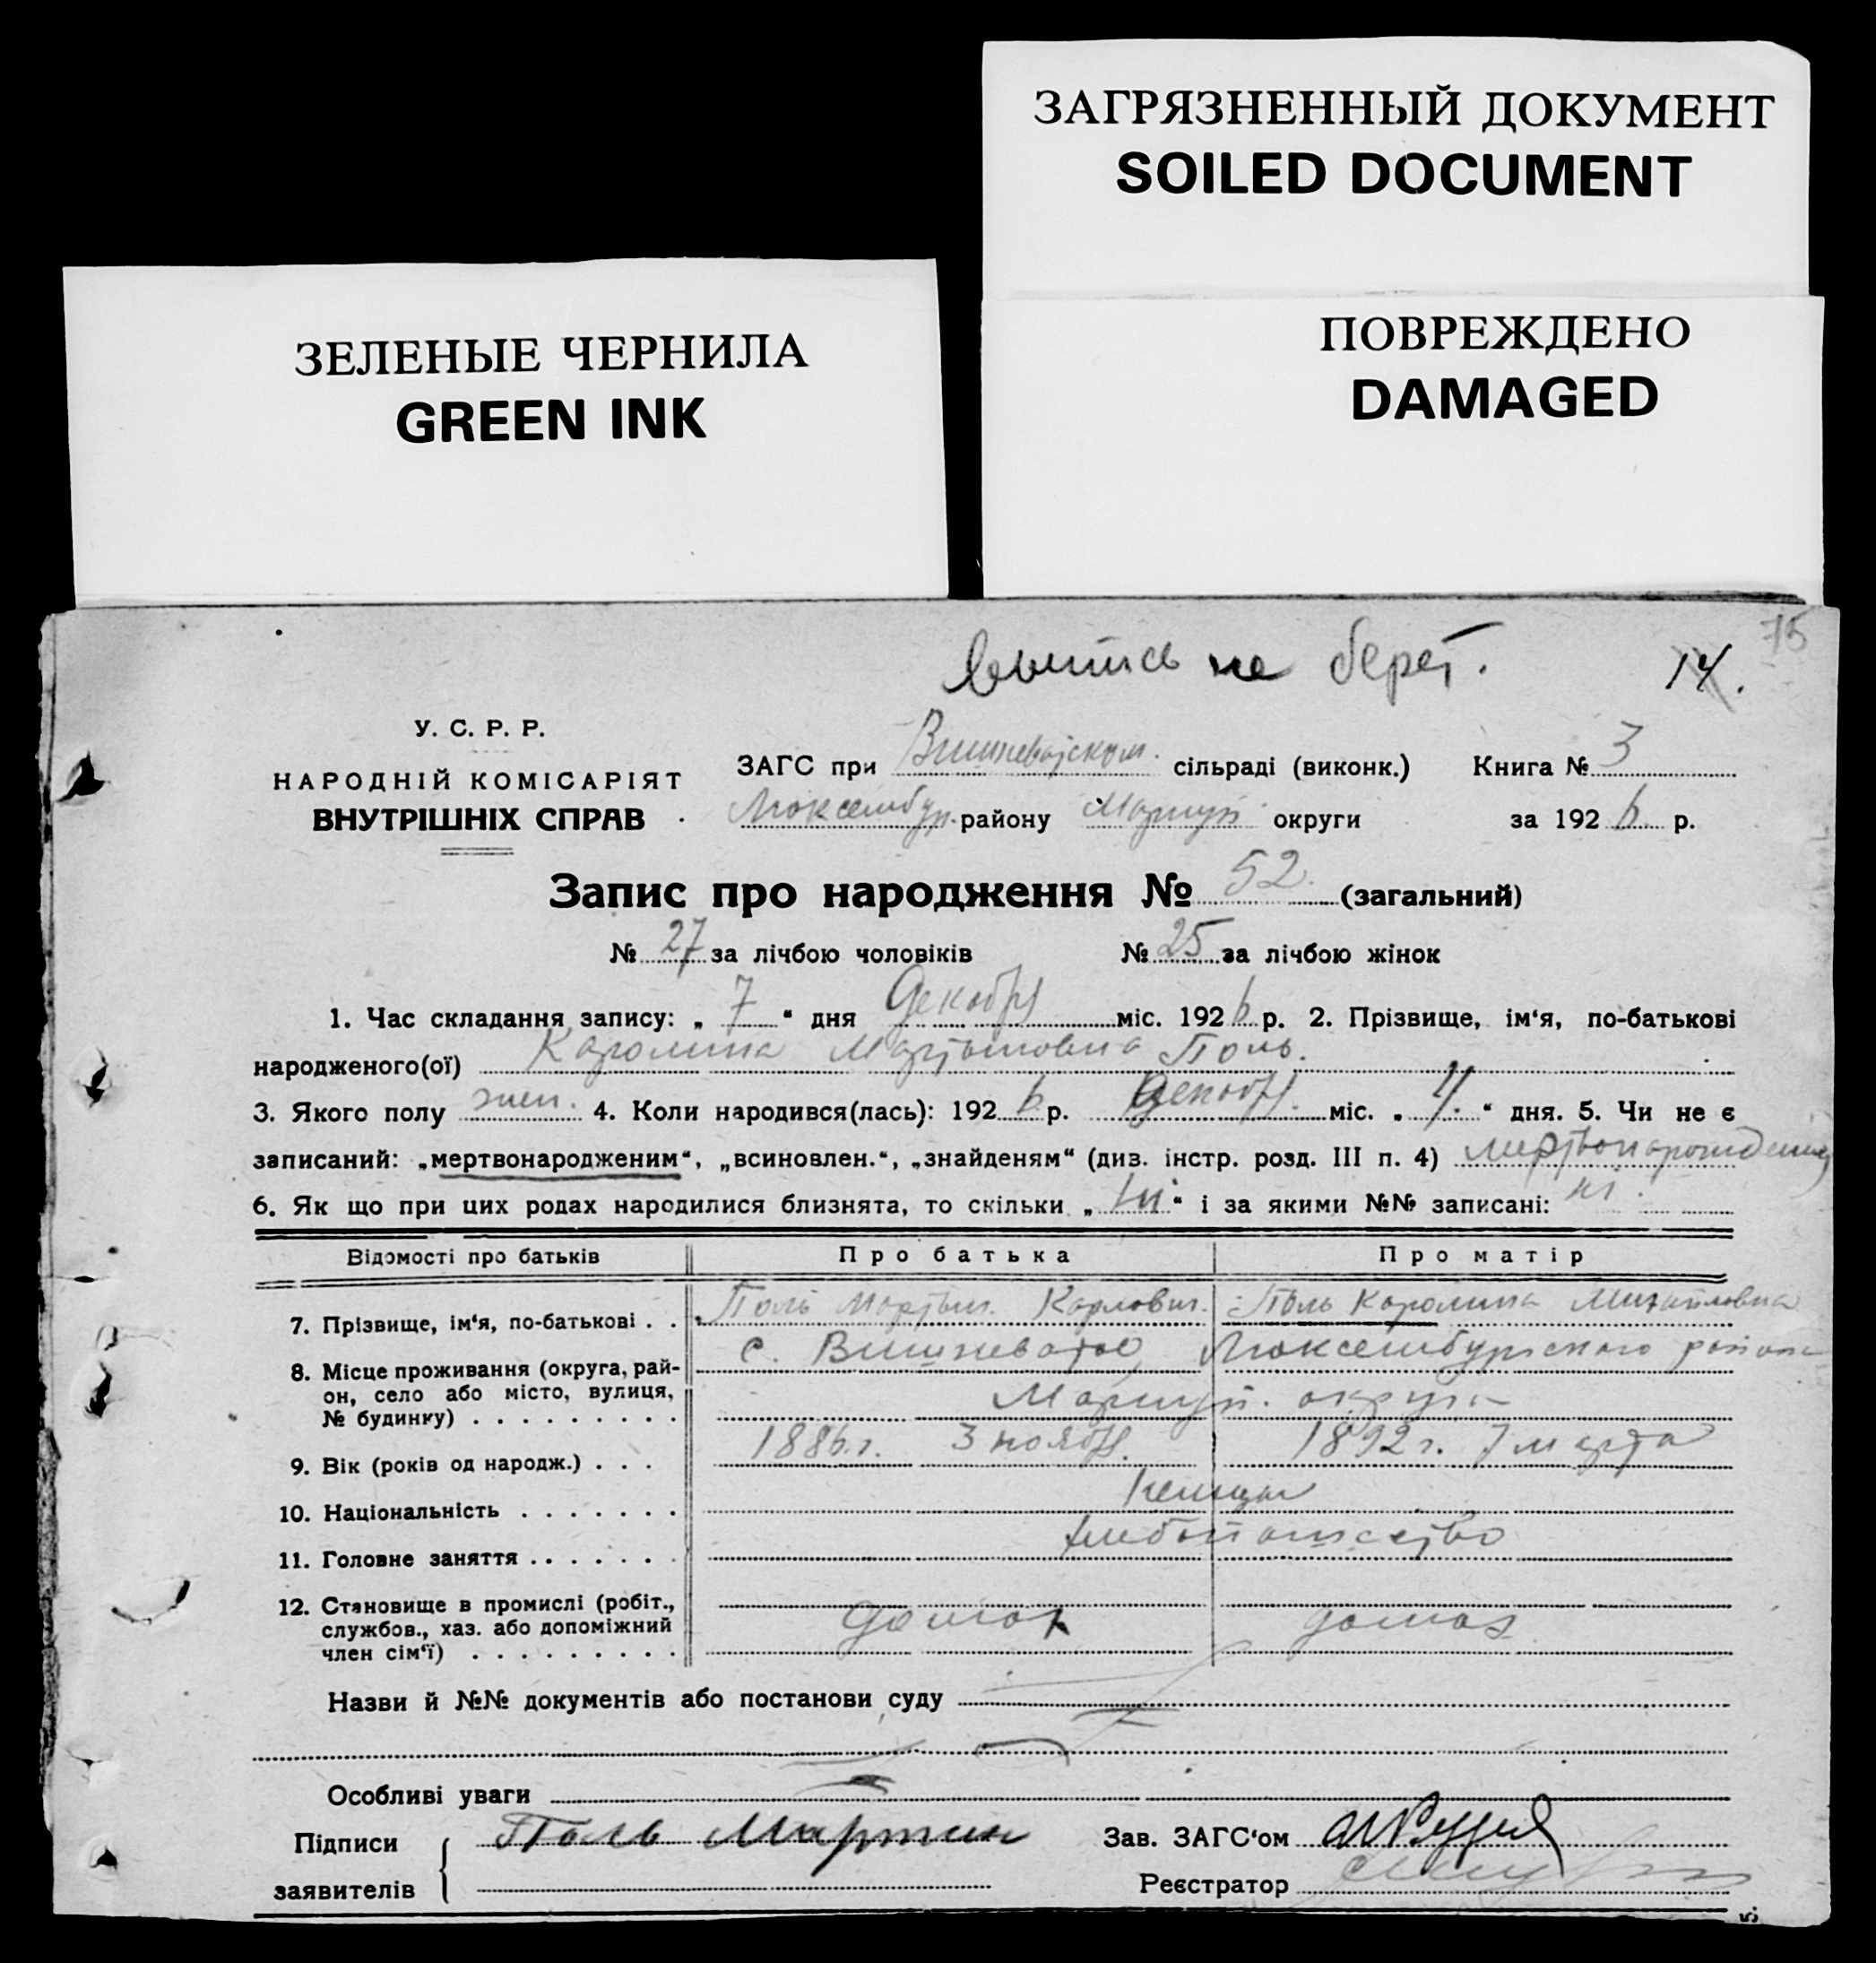 ЗАГРЯЗНЕННЫЙ ДОКУМЕНТ
SOILED DOCUMENT
ЗЕЛЕНЫЕ ЧЕРНИЛА
GREEN INK
ПОВРЕЖДЕНО
DAMAGED
75
Выпись не берет. 14.
У. С. Р. Р.
НАРОДНІЙ КОМІСАРІЯТ
ВНУТРІШНІХ СПРАВ
ЗАГС при Вишневатском сільраді (виконк.) Книга № 3
Люксембур. району Мариуп. округи за 1926 р.
Запис про народження № 52. (загальний)
№ 27 за лічбою чоловіків № 25 за лічбою жінок
1. Час складання запису: „ 7 “ дня Декабря міс. 1926 р. 2. Прізвище, ім‘я, по-батькові
народженого(ої) Каролина Мартыновна Поль.
3. Якого полу жен. 4. Коли народився(лась): 1926 р. Декабр. міс. „ “ дня. 5. Чи не є
записаний: „мертвонародженим“, „всиновлен.“, „знайденям“ (див. інстр. розд. III п. 4)
6. Як що при цих родах народилися близнята, то скільки „ ні “ і за якими №№ записані: ні.
Відомості про батьків Про батька Про матір
7. Прізвище, ім‘я, по-батькові . . Поль Мартын. Карлович. Поль Каролина Михайловна
8. Місце проживання (округа, рай-
он, село або місто, вулиця,
№ будинку) . . . . . . . . .
с. Вишневатое, Люксембургского района
Мариуп. округа
9. Вік (років од народж.) . . . 1886 г. 3 ноябр. 1892 г. 7 марта
10. Національність . . . . . . . немцы
11. Головне заняття . . . . . . . хлебопашество
12. Становище в промислі (робіт.,
службов., хаз. або допоміжний
член сім‘ї) . . . . . . . . .
Назви й №№ документів або постанови суду
Особливі уваги
Підписи
заявителів
Поль Мартин
Зав. ЗАГС‘ом
Реєстратор